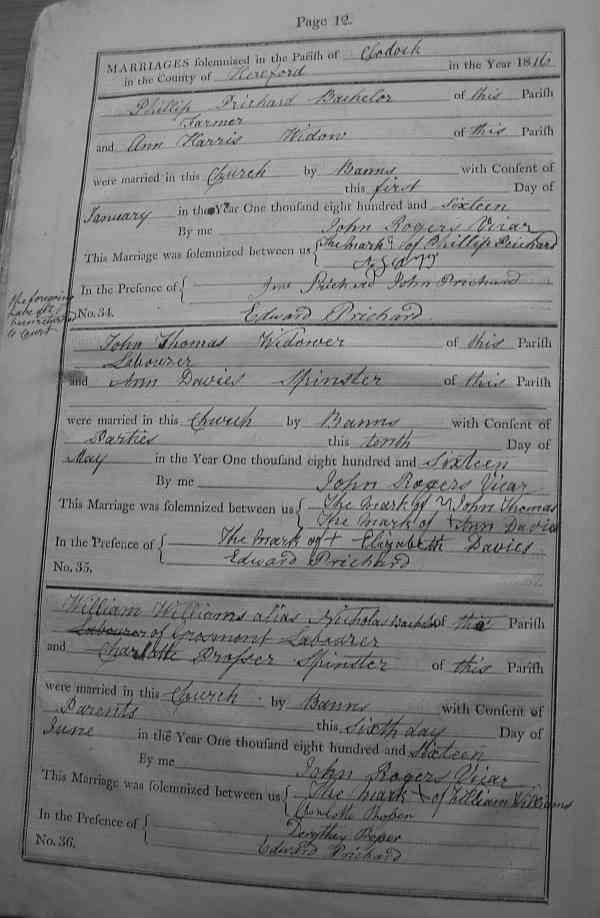 Page 12.
MARRIAGES solemnized in the Parish of Clodock
in the County of Hereford in the Year 1816
Phillip Prichard Bachelor of this Parish
Farmer
and Ann Harris Widow of this Parish
were married in this Church by Banns with Consent of
this first Day of
January in the Year One thousand eight hundred and sixteen
By me John Rogers Vicar
This Marriage was solemnized between us { The Mark of Phillip Prichard
In the Presence of { Prichard John Prichard
No. 34. Edward Prichard
the foregoing
have all
been returned
to Court
John Thomas Widower of this Parish
Labourer
and Ann Davies Spinster of this Parish
were married in this Church by Banns with Consent of
Parties this tenth Day of
May in the Year One thousand eight hundred and Sixteen
By me John Rogers Vicar
This Marriage was solemnized between us { The Mark of John Thomas
The Mark of + Ann Davies
In the Presence of { The Mark of + Elizabeth Davies
Edward Prichard
No. 35.
William Williams alias Nicholas Bachelor of this Parish
Labourer of Grosmont Labourer
and Charlotte Prosser Spinster of this Parish
were married in this Church by Banns with Consent of
Parents this Sixth day Day of
June in the Year One thousand eight hundred and Sixteen
By me John Rogers Vicar
This Marriage was solemnized between us { The Mark of William Williams
Charlotte
In the Presence of {
Edward Prichard
No. 36.